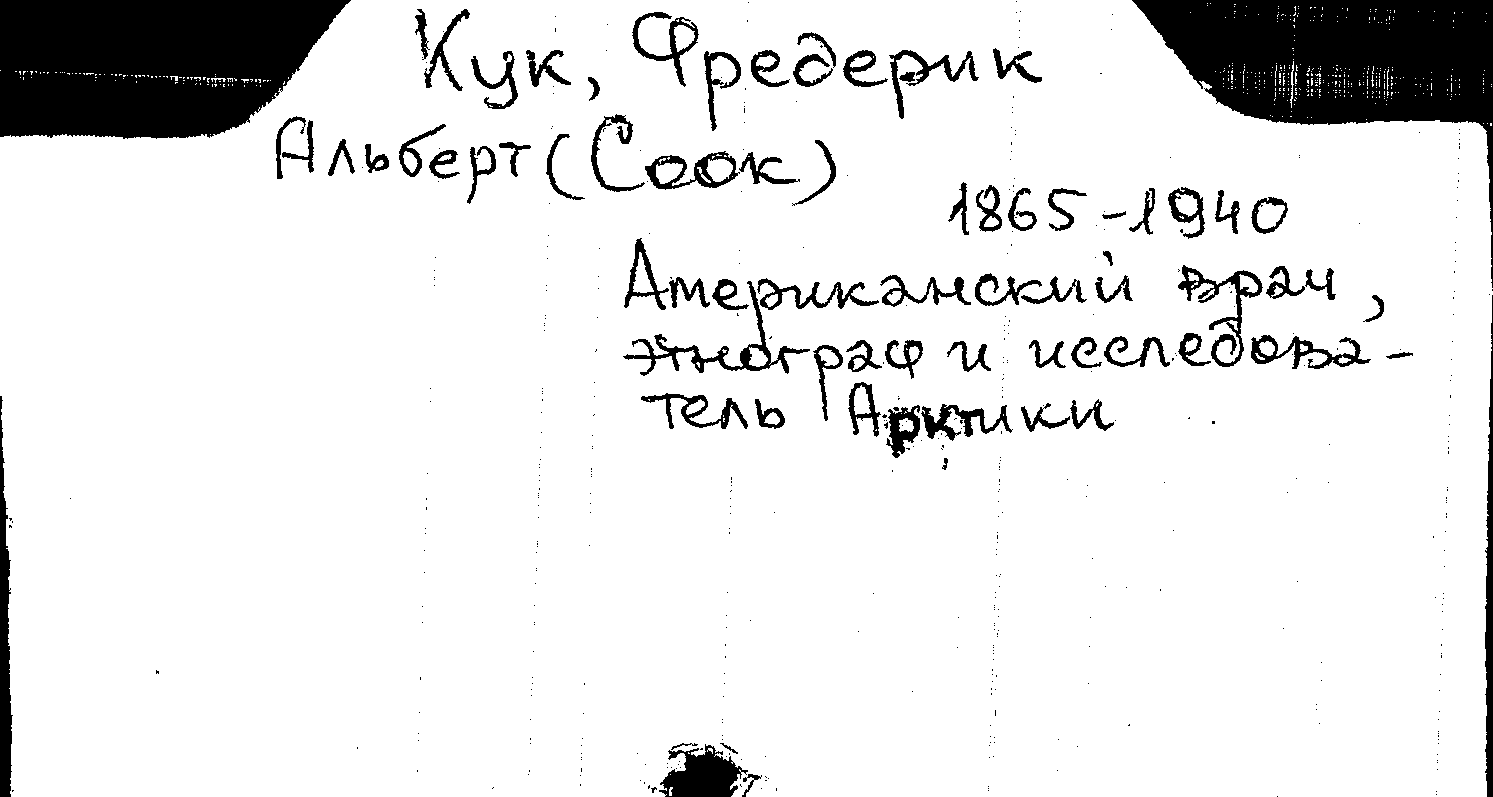 Кук, Фредерик
Альберт (Cook)
1865-1940
Американский врач,
этнограф и исследова-
тель Арктики